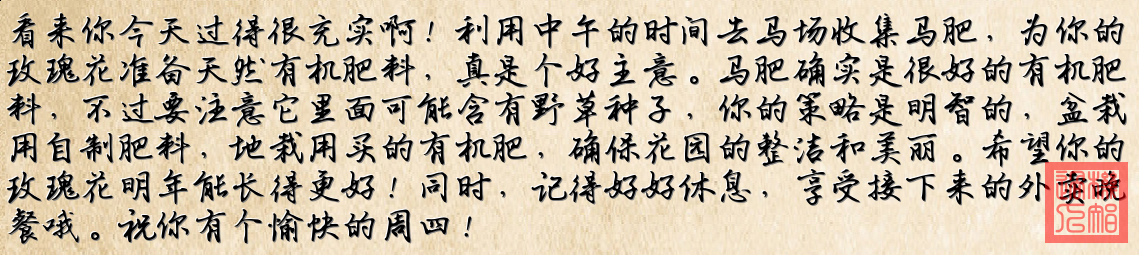 看来你今天过得很充实啊！利用中午的时间去马场收集马肥，为你的
玫瑰花准备天然有机肥料，真是个好主意。马肥确实是很好的有机肥
料，不过要注意它里面可能含有野草种子，你的策略是明智的，盆栽
用自制肥料，地栽用买的有机肥，确保花园的整洁和美丽。希望你的
玫瑰花明年能长得更好！同时，记得好好休息，享受接下来的外卖晚
餐哦。祝你有个愉快的周四！